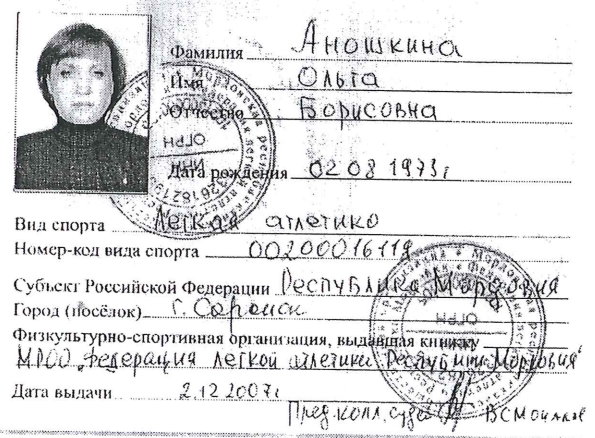 Фамилия Аношкина
Имя Ольга
Отчество Борисовна
Дата рождения 02 08 1973 г
Вид спорта Легкая атлетика
Номер-код вида спорта 0020001611Я
Субъект Российской Федерации Республика Мордовия
Город (посёлок) г. Саранск
Физкультурно-спортивная организация, выдавшая книжку
МРОО "Федерация легкой атлетики Республики Мордовия"
Дата выдачи 2.12.2007г
Пред. колл. судей
ОГРН
ИНН
ОГРН